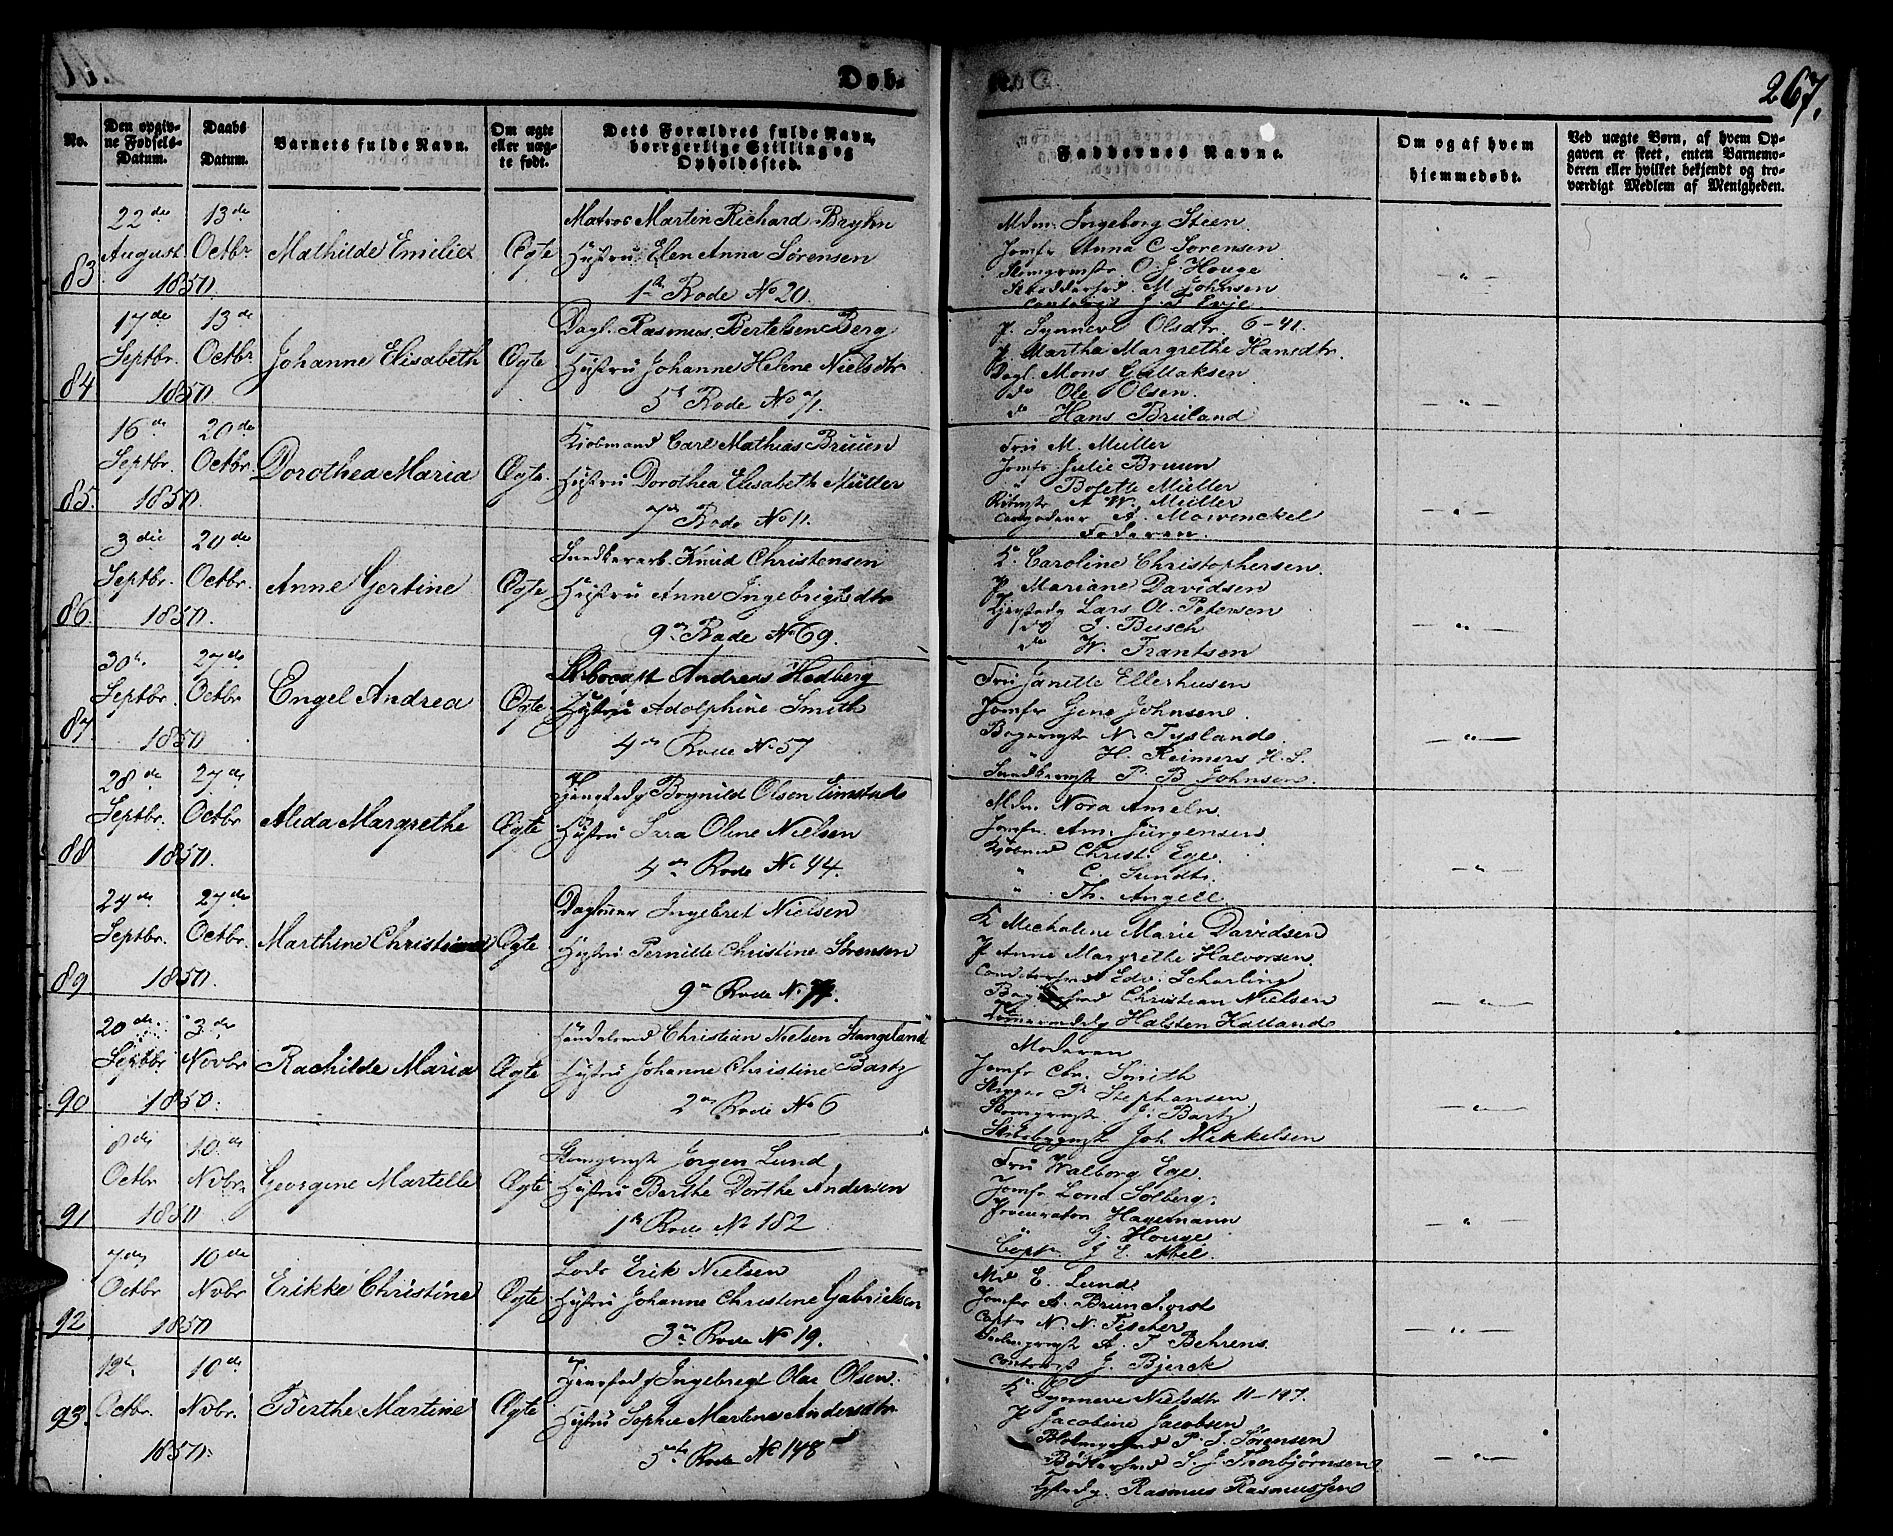 Døb.
267.
No.
Den opgiv-
ne Fødsels-
Datum.
Daabs
Datum.
Barnets fulde Navn.
Om ægte
eller uæg-
te født.
Dets Forældres fulde Navn,
borgerlige Stilling og
Opholdssted.
Faddernes Navne.
Om og af hvem
hjemmedøbt.
Ved uægte Børn, af hvem Op-
gaven er skeet, enten Barnemo-
deren eller hvilket bekjendt og tro-
værdigt Medlem af Menigheden.
83
22de
August
1850.
13de
Octbr
Mathilde Emilie
Ægte
Matros Martin Richard Bryhn
Hustru Elen Anna Sørensen
1te Rode No 20
Mdm. Ingeborg Steen
Jomfr Anna C Sørensen
O. J. Houge
M. Johnsen
J. T. Evje
84
17de
Septbr.
1850
13de
Octbr
Johanne Elisabeth
Ægte
Dagl. Rasmus Bertelsen Berg
Hustru Johanne Helene Nielsdtr
5t Rode No 71.
p. Synneve Olsdtr. 6-41.
p Martha Margrethe Hansdtr.
Dagl. Mons Gullaksen
do Ole Olsen
do Hans Bruland
85.
16de
Septbr.
1850.
20de
Octbr.
Dorothea Maria
Ægte.
Kjøbmand Carl Mathias Bruuen
Hustru Dorothea Elisabeth Müller
7de Rode No 11.
Fru M. Müller
Jomfr Julie Bruun
" Bolette Müller
A W. Müller
A. Mowinckel
Faderen.
86
3die
Septbr.
1850.
20de
Octbr.
Anne Gertine
Ægte
Knud Christensen
Hustru Anne Ingebrigtsdtr
9de Rode No 69.
K. Caroline Christophersen.
p Mariane Davidsen
Lars A. Petersen
J. Busch
do W. Frantsen
87
30te
Septbr.
1850
27de
Octbr
Engel Andrea
Ægte
Andreas Hedberg
Hustru Adolphine Smith
4de Rode No 57
Fru Janette Ellerhusen
Jomfr Gine Johnsen.
N. Tysland
H. Reimers H. S.
P. B. Johnsen.
88
28de
Septbr.
1850.
27de
Octbr
Alida Margrethe
Ægte
Boynild Olsen Eimstad
Hustru Sara Oline Nielsen
4de Rode No 44.
Mdm. Nora Ameln
Jomfr. Am. Jürgensen
Kjøbmd Christ. Ege.
" C. Sundtr.
" Th. Angell
89
24de
Septbr.
1850.
27de
Octbr.
Marthine Christine
Ægte
Dagleier Ingebret Nielsen
Hustru Pernille Christine Sørensen
9de Rode No
K Michaline Marie Davidsen
p Anne Margrethe Halvorsen.
Edv. Scharling
Christian Nielsen
Halsten Kalland
90
20de
Septbr
1850.
3de
Novbr
Rachilde Maria
Ægte
Christian Nielsen Stangeland
Hustru Johanne Christine Bartz
2den Rode No 6
Moderen
Jomfr Chr. Smith
Stephansen
J. Bartz
Joh Mikkelsen
91
8de
Octbr
1850
10de
Nvbr.
Georgine Martelle
Ægte
Jørgen Lund
Hustru Berthe Dorthe Andersen
1te Rode No 182
Fru Walborg Ege
Jomfr Lona Solberg.
Procurator Hagemann
G. Houge
Capt. J E. Abel.
92
7de
Octbr
1850
10de
Nvbr
Erikke Christine
Ægte
Lods Erik Nielsen
Hustru Johanne Christine Gabrielsen
3de Rode No 19.
Md E. Lund
Jomfr A. Brunchorst
Capt N. N. Fischer
A. T Behrens.
J. Bjerck
93.
12te
Octbr.
1850.
10de
Nvbr.
Birthe Martine
Ægte
Ingebregt Olai Olsen.
Hustru Sophie Martine Andersdtr
5te Rode No 148
K. Synneve Nielsdtr 11-147.
p Jacobine Jacobsen
P. S. Sørensen
S. J. Thorbjørnsen
Rasmus Rasmussen